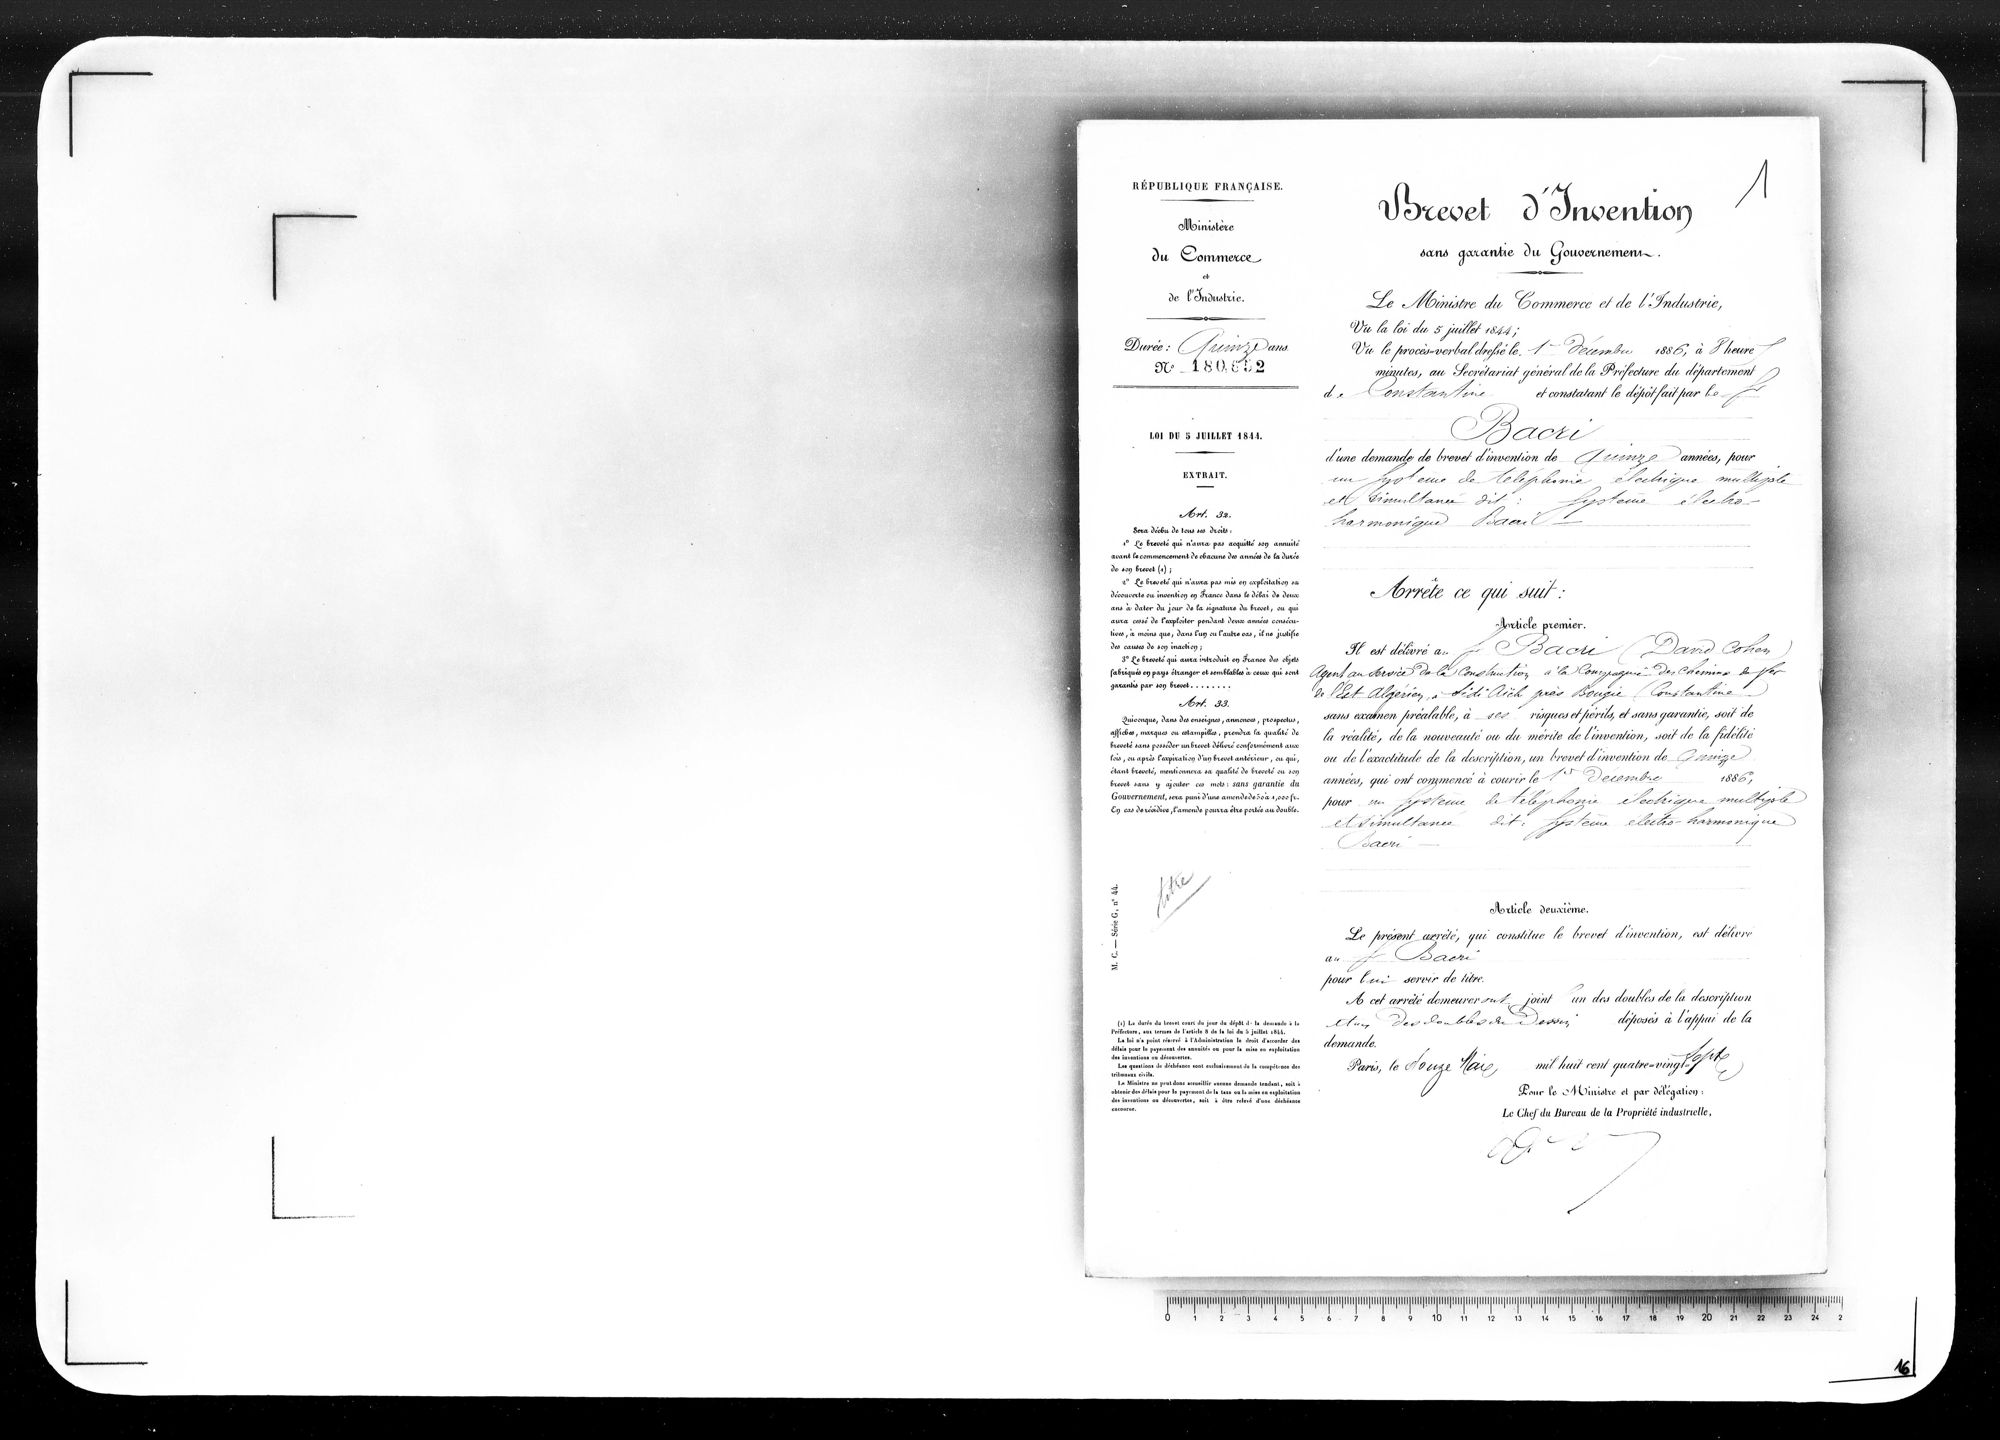 1
RÉPUBLIQUE FRANÇAISE.
Ministère
du Commerce
et
de l'Industrie.
Durée : Quinze ans
N° 180,652
LOI DU 5 JUILLET 1844.
EXTRAIT.
Art. 32.
Sera déchu de tous ses droits :
1° Le breveté qui n'aura pas acquitté son annuité
avant le commencement de chacune des années de la durée
de son brevet (1) ;
2° Le breveté qui n'aura pas mis en exploitation sa
découverte ou invention en France dans le délai de deux
ans à dater du jour de la signature du brevet, ou qui
aura cessé de l'exploiter pendant deux années consécu-
tives, à moins que, dans l'un ou l'autre cas, il ne justifie
des causes de son inaction ;
3° Le breveté qui aura introduit en France des objets
fabriqués en pays étranger et semblables à ceux qui sont
garantis par son brevet........
Art. 33.
Quiconque, dans des enseignes, annonces, prospectus,
affiches, marques ou estampilles, prendra la qualité de
breveté sans posséder un brevet délivré conformément aux
lois, ou après l'expiration d'un brevet antérieur, ou qui,
étant breveté, mentionnera sa qualité de breveté ou son
brevet sans y ajouter ces mots : sans garantie du
Gouvernement, sera puni d'une amende de 50 à 1,000 fr.
En cas de récidive, l'amende pourra être portée au double.
titre
M. C. — Série G, n° 44.
(1) La durée du brevet court du jour du dépôt de la demande à la
Préfecture, aux termes de l'article 8 de la loi du 5 juillet 1844.
La loi n'a point réservé à l'Administration le droit d'accorder des
délais pour le payement des annuités ou pour la mise en exploitation
des inventions ou découvertes.
Les questions de déchéance sont exclusivement de la compétence des
tribunaux civils.
Le Ministre ne peut donc accueillir aucune demande tendant, soit à
obtenir des délais pour le payement de la taxe ou la mise en exploitation
des inventions ou découvertes, soit à être relevé d'une déchéance
encourue.
Brevet d'Invention
sans garantie du Gouvernement.
Le Ministre du Commerce et de l'Industrie,
Vu la loi du 5 juillet 1844 ;
Vu le procès-verbal dressé le 1er décembre 1886, à 8 heures
minutes, au Secrétariat général de la Préfecture du département
de Constantine et constatant le dépôt fait par le Sr
Bacri
d'une demande de brevet d'invention de quinze années, pour
un système de téléphonie électrique multiple
et simultanée dit : Système électro-
harmonique Bacri —
Arrête ce qui suit :
Article premier.
Il est délivré au Sr Bacri (David Cohen)
Agent au service de la Construction à la Compagnie des Chemins de fer
de l'Est Algérien, à Sidi Aïch près Bougie (Constantine)
sans examen préalable, à ses risques et périls, et sans garantie, soit de
la réalité, de la nouveauté ou du mérite de l'invention, soit de la fidélité
ou de l'exactitude de la description, un brevet d'invention de quinze
années, qui ont commencé à courir le 1er décembre 1886,
pour un système de téléphonie électrique multiple
et simultanée dit : Système électro-harmonique
Bacri —
Article deuxième.
Le présent arrêté, qui constitue le brevet d'invention, est délivré
au Sr Bacri
pour lui servir de titre.
A cet arrêté demeureront joint un des doubles de la description
et un des doubles du dessin déposés à l'appui de la
demande.
Paris, le douze Mars mil huit cent quatre-vingt-sept
Pour le Ministre et par délégation :
Le Chef du Bureau de la Propriété industrielle,
0 1 2 3 4 5 6 7 8 9 10 11 12 13 14 15 16 17 18 19 20 21 22 23 24 2
16